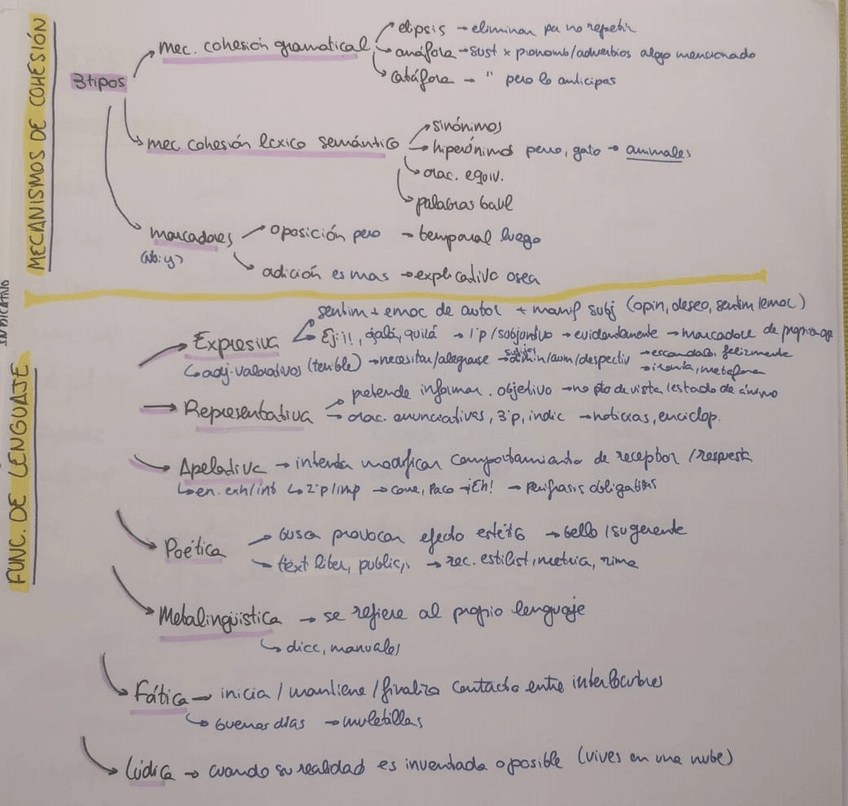 MECANISMOS DE COHESIÓN
3 tipos
mec. cohesión gramatical
elipsis → eliminan pa no repetir
anáfora → sust x pronomb/adverbios algo mencionado
catáfora → " pero lo anticipas
mec cohesión lexico semántico
sinónimos
hiperónimos perro, gato → animales
orac. equiv.
palabras baul
marcadores
oposición pero → temporal luego
adición es mas → explicativo osea
INDICATIVO
FUNC. DE LENGUAJE
Expresiva
sentim + emoc de autor + manif subj (opin, deseo, sentim/emoc)
Ej: ¡!, ojalá, quizá → 1ªp/subjuntivo → evidentemente → marcadore de propia op
↳ adj. valorativos (terrible) → necesitar/alegrarse → dimin/aum/despectiv → escandalo, felizmente
→ ironía, metafora
Representativa
pretende informar. objetivo → no pto de vista/estado de ánimo
orac. enunciatives, 3ªp, indic → noticias, enciclop.
Apelativa → intenta modificar comportamiento de receptor/respuesta
↳ en. exh/int ↳ 2ªp/imp → Corre, Paco → ¡Eh! → Perífrasis obligación
Poética
→ busca provocar efecto estético → bello/sugerente
→ text liter, public, → rec. estilist, metrica, rima
Metalingüistica → se refiere al propio lenguaje
↳ dicc, manuales
Fática → inicia/mantiene/finaliza contacto entre interlocutores
↳ buenos días → muletillas
Lúdica → cuando su realidad es inventada o posible (vives en una nube)